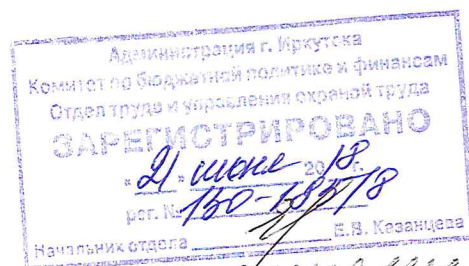 Администрация г. Иркутска
Комитет по бюджетной политике и финансам
Отдел труда и управления охраной труда
ЗАРЕГИСТРИРОВАНО
« 21 » июня 2018 г.
рег. № 150-185/18
Начальник отдела Е.В. Казанцева